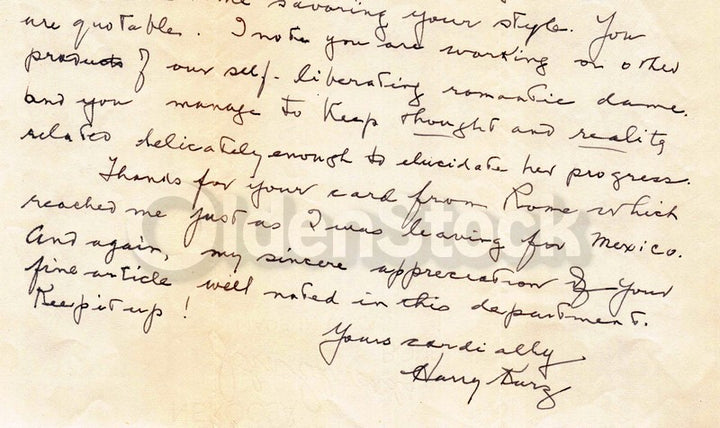 me savoring your style. You
are quotable. I note you are working on other
products of our self-liberating romantic dame.
And you manage to keep thought and reality
related delicately enough to elucidate her progress.
Thanks for your card from Rome which
reached me just as I was leaving for Mexico.
And again, my sincere appreciation of your
fine article well noted in this department.
Keep it up!
Yours cordially,
Harry Kurz
OldenStock